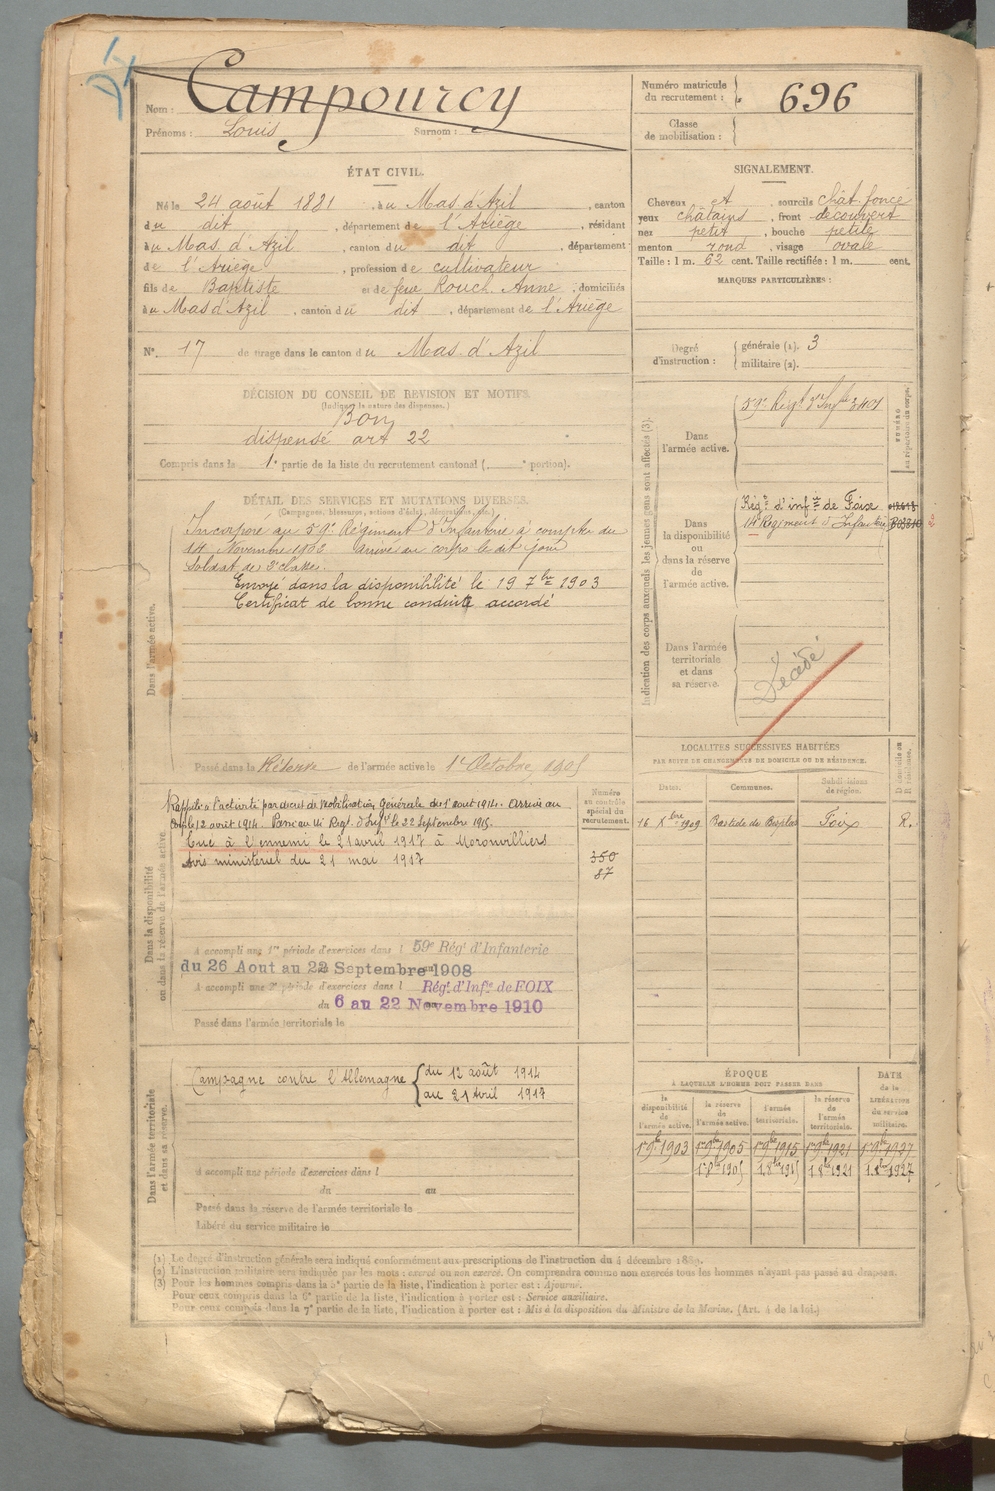 Nom : Campourcy
Prénoms : Louis Surnom :
Numéro matricule du recrutement : 696
Classe de mobilisation :
ÉTAT CIVIL.
Né le 24 août 1881, à u Mas d'Azil, canton
du dit, département de l'Ariège, résidant
à u Mas d'Azil, canton du dit, département
de l'Ariège, profession de cultivateur
fils de Baptiste et de feue Rouch Anne, domiciliés
à u Mas d'Azil, canton du dit, département de l'Ariège
N° 17 de tirage dans le canton du Mas d'Azil
SIGNALEMENT.
Cheveux et, sourcils chât foncé
yeux châtains, front découvert
nez petit, bouche petite
menton rond, visage ovale
Taille : 1 m. 62 cent. Taille rectifiée : 1 m. cent.
MARQUES PARTICULIÈRES :
Degré d'instruction : générale (1). 3
militaire (2).
DÉCISION DU CONSEIL DE REVISION ET MOTIFS.
(Indiquer la nature des dispenses.)
Bon
dispensé art 22
Compris dans la 1e partie de la liste du recrutement cantonal ( e portion).
DÉTAIL DES SERVICES ET MUTATIONS DIVERSES.
(Campagnes, blessures, actions d'éclat, décorations, etc.)
Dans l'armée active.
Incorporé au 59e Régiment d'Infanterie à compter du
14 Novembre 1902 arrivé au corps le dit jour
Soldat de 2e classe.
Envoyé dans la disponibilité le 19 7bre 1903
Certificat de bonne conduite accordé
Passé dans la Réserve de l'armée active le 1er Octobre 1905
Indication des corps auxquels les jeunes gens sont affectés (3).
NUMÉRO au répertoire du corps.
Dans l'armée active.
59e Régt d'Infie 3401
Dans la disponibilité ou dans la réserve de l'armée active.
Régt d'infie de Foix
14e Régiment d'Infanterie
Dans l'armée territoriale et dans sa réserve.
Décédé
LOCALITÉS SUCCESSIVES HABITÉES
PAR SUITE DE CHANGEMENTS DE DOMICILE OU DE RÉSIDENCE.
Dates. Communes. Subdivisions de région. D domicile ou R résidence.
16 Xbre 1909 Bastide de Foix R.
Dans la disponibilité ou dans la réserve de l'armée active.
Numéro au contrôle spécial du recrutement.
350
87
Rappelé à l'activité par décret de Mobilisation Générale du 1er août 1914. Arrivé au
corps le 12 août 1914. Passé au 14e Régt. d'Infie le 22 Septembre 1915.
Tué à l'ennemi le 21 avril 1917 à Moronvilliers
Avis ministériel du 21 mai 1917
A accompli une 1re période d'exercices dans l 59e Régt. d'Infanterie
du 26 Aout au 22 Septembre 1908
A accompli une 2e période d'exercices dans l Régt. d'Infie de FOIX
du 6 au 22 Novembre 1910
Passé dans l'armée territoriale le
Dans l'armée territoriale et dans sa réserve.
Campagne contre l'Allemagne du 12 août 1914
au 21 Avril 1917
A accompli une période d'exercices dans l
du au
Passé dans la réserve de l'armée territoriale le
Libéré du service militaire le
ÉPOQUE
À LAQUELLE L'HOMME DOIT PASSER DANS
DATE de la LIBÉRATION du service militaire.
la disponibilité de l'armée active. la réserve de l'armée active. l'armée territoriale. la réserve de l'armée territoriale.
1er 9bre 1903 1er 9bre 1905 1er 9bre 1915 1er 9bre 1921 1er 9bre 1927
1er 8bre 1905 1er 8bre 1915 1er 8bre 1921 1er 8bre 1927
(1) Le degré d'instruction générale sera indiqué conformément aux prescriptions de l'instruction du 4 décembre 1889.
(2) L'instruction militaire sera indiquée par les mots : exercé ou non exercé. On comprendra comme non exercés tous les hommes n'ayant pas passé au drapeau.
(3) Pour les hommes compris dans la 5e partie de la liste, l'indication à porter est : Ajourné.
Pour ceux compris dans la 6e partie de la liste, l'indication à porter est : Service auxiliaire.
Pour ceux compris dans la 7e partie de la liste, l'indication à porter est : Mis à la disposition du Ministre de la Marine. (Art. 4 de la loi.)